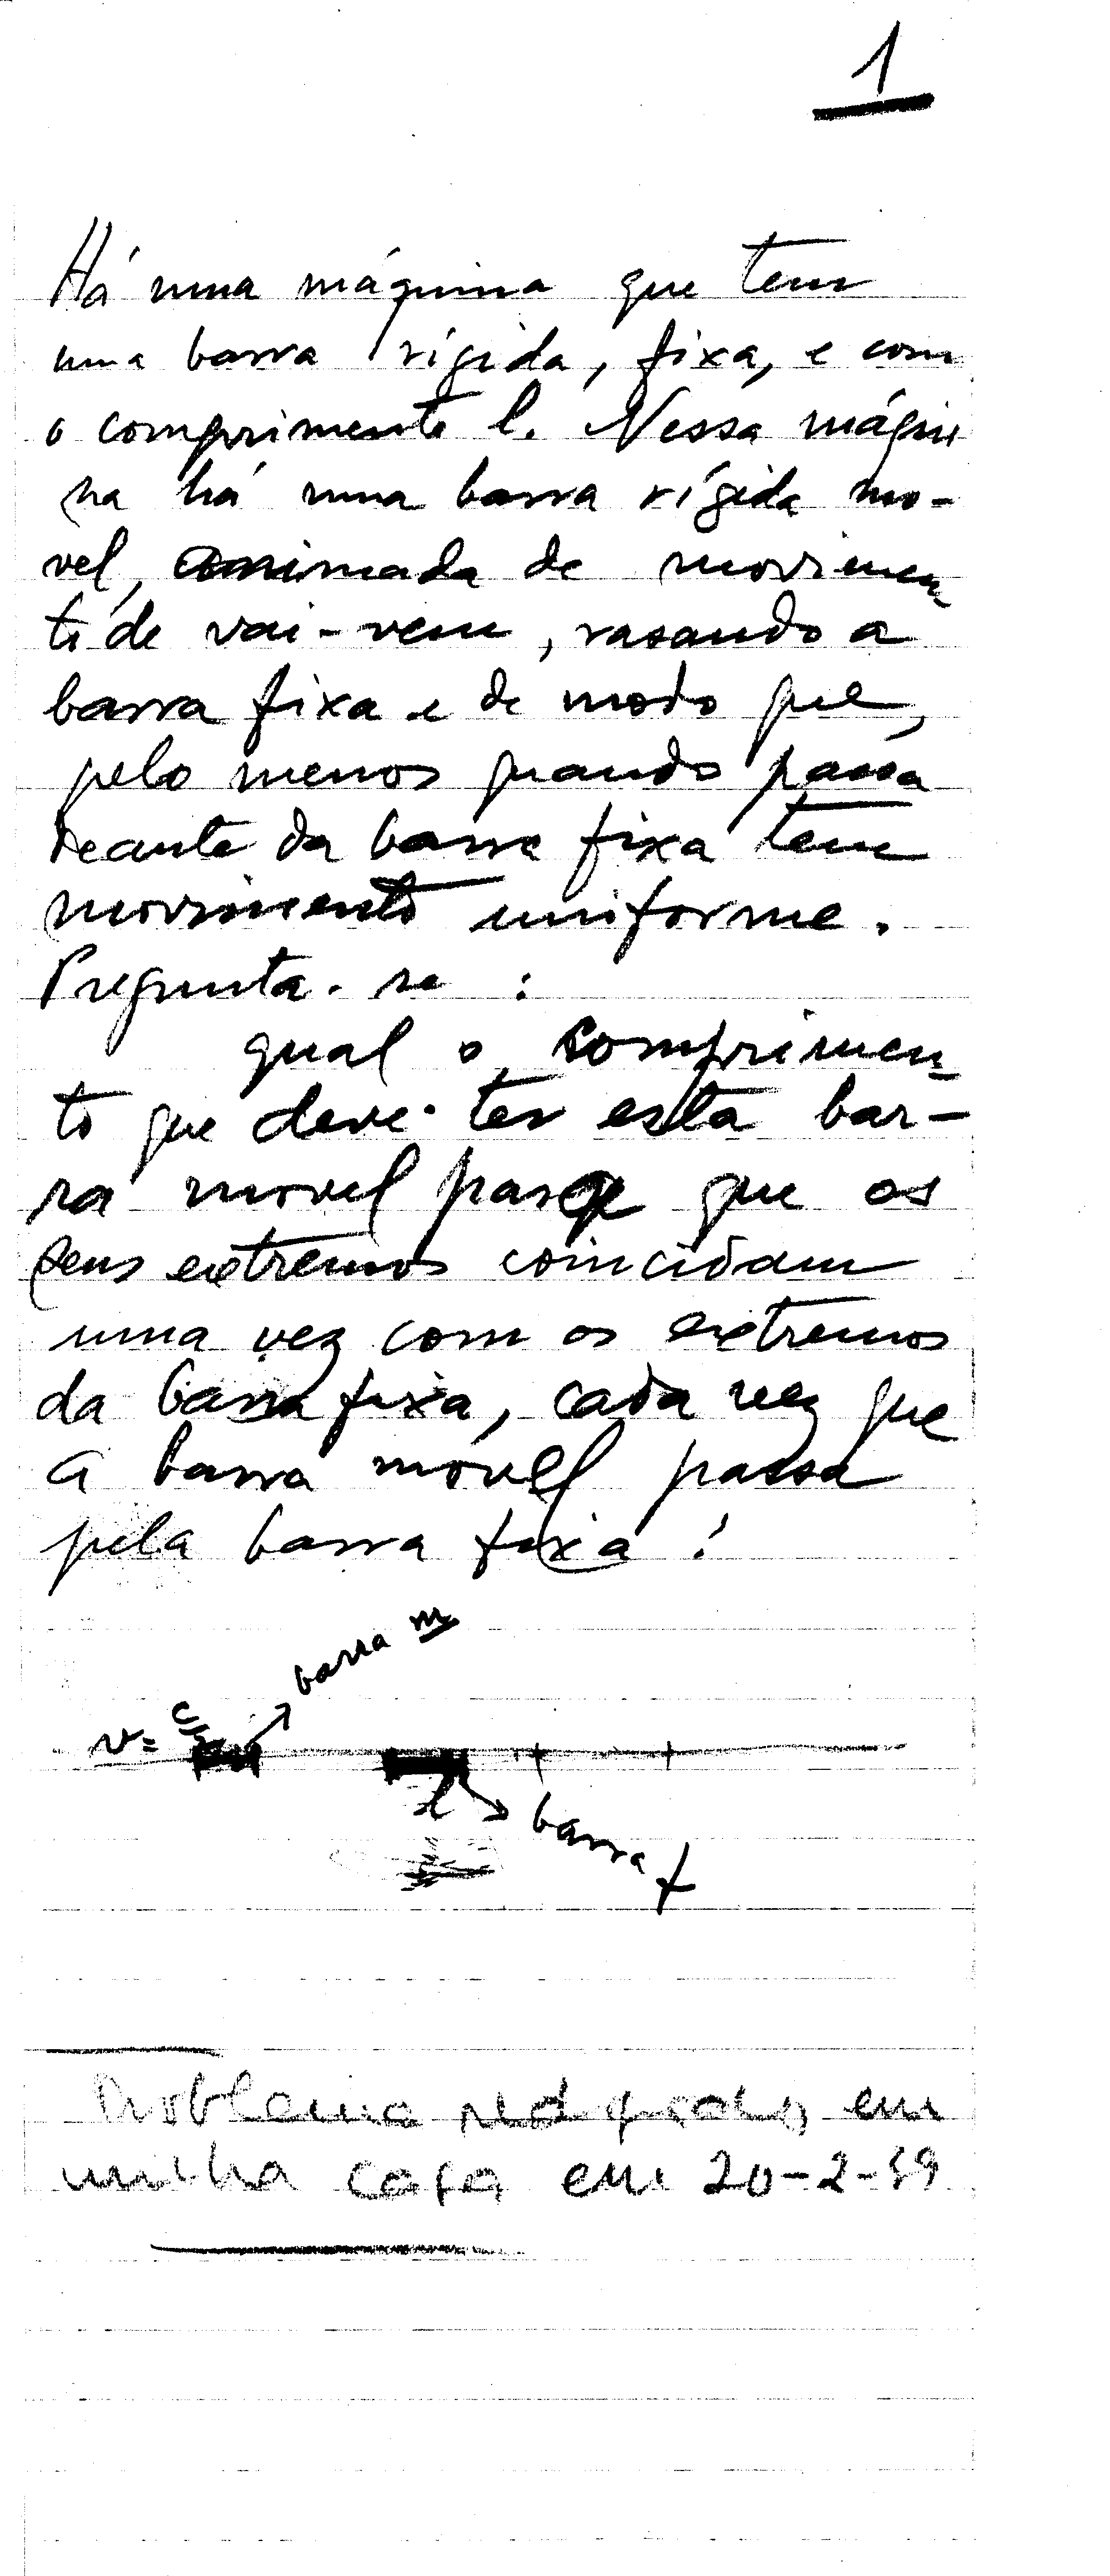 1
Há uma máquina que tem
uma barra rígida, fixa, e com
o comprimento l. Nessa máqui
na há uma barra rígida mo-
vel, animada de movimen
to de vai-vem, rasando a
barra fixa e de modo que,
pelo menos quando passa
deante da barra fixa tem
movimento uniforme.
Pregunta-se :
qual o comprimen-
to que deve ter esta bar-
ra movel para que os
seus extremos coincidam
uma vez com os extremos
da barra fixa, cada vez que
a barra móvel passa
pela barra fixa?
barra m
v=
l
barra f
Problema redigido em
minha casa em 20-2-59